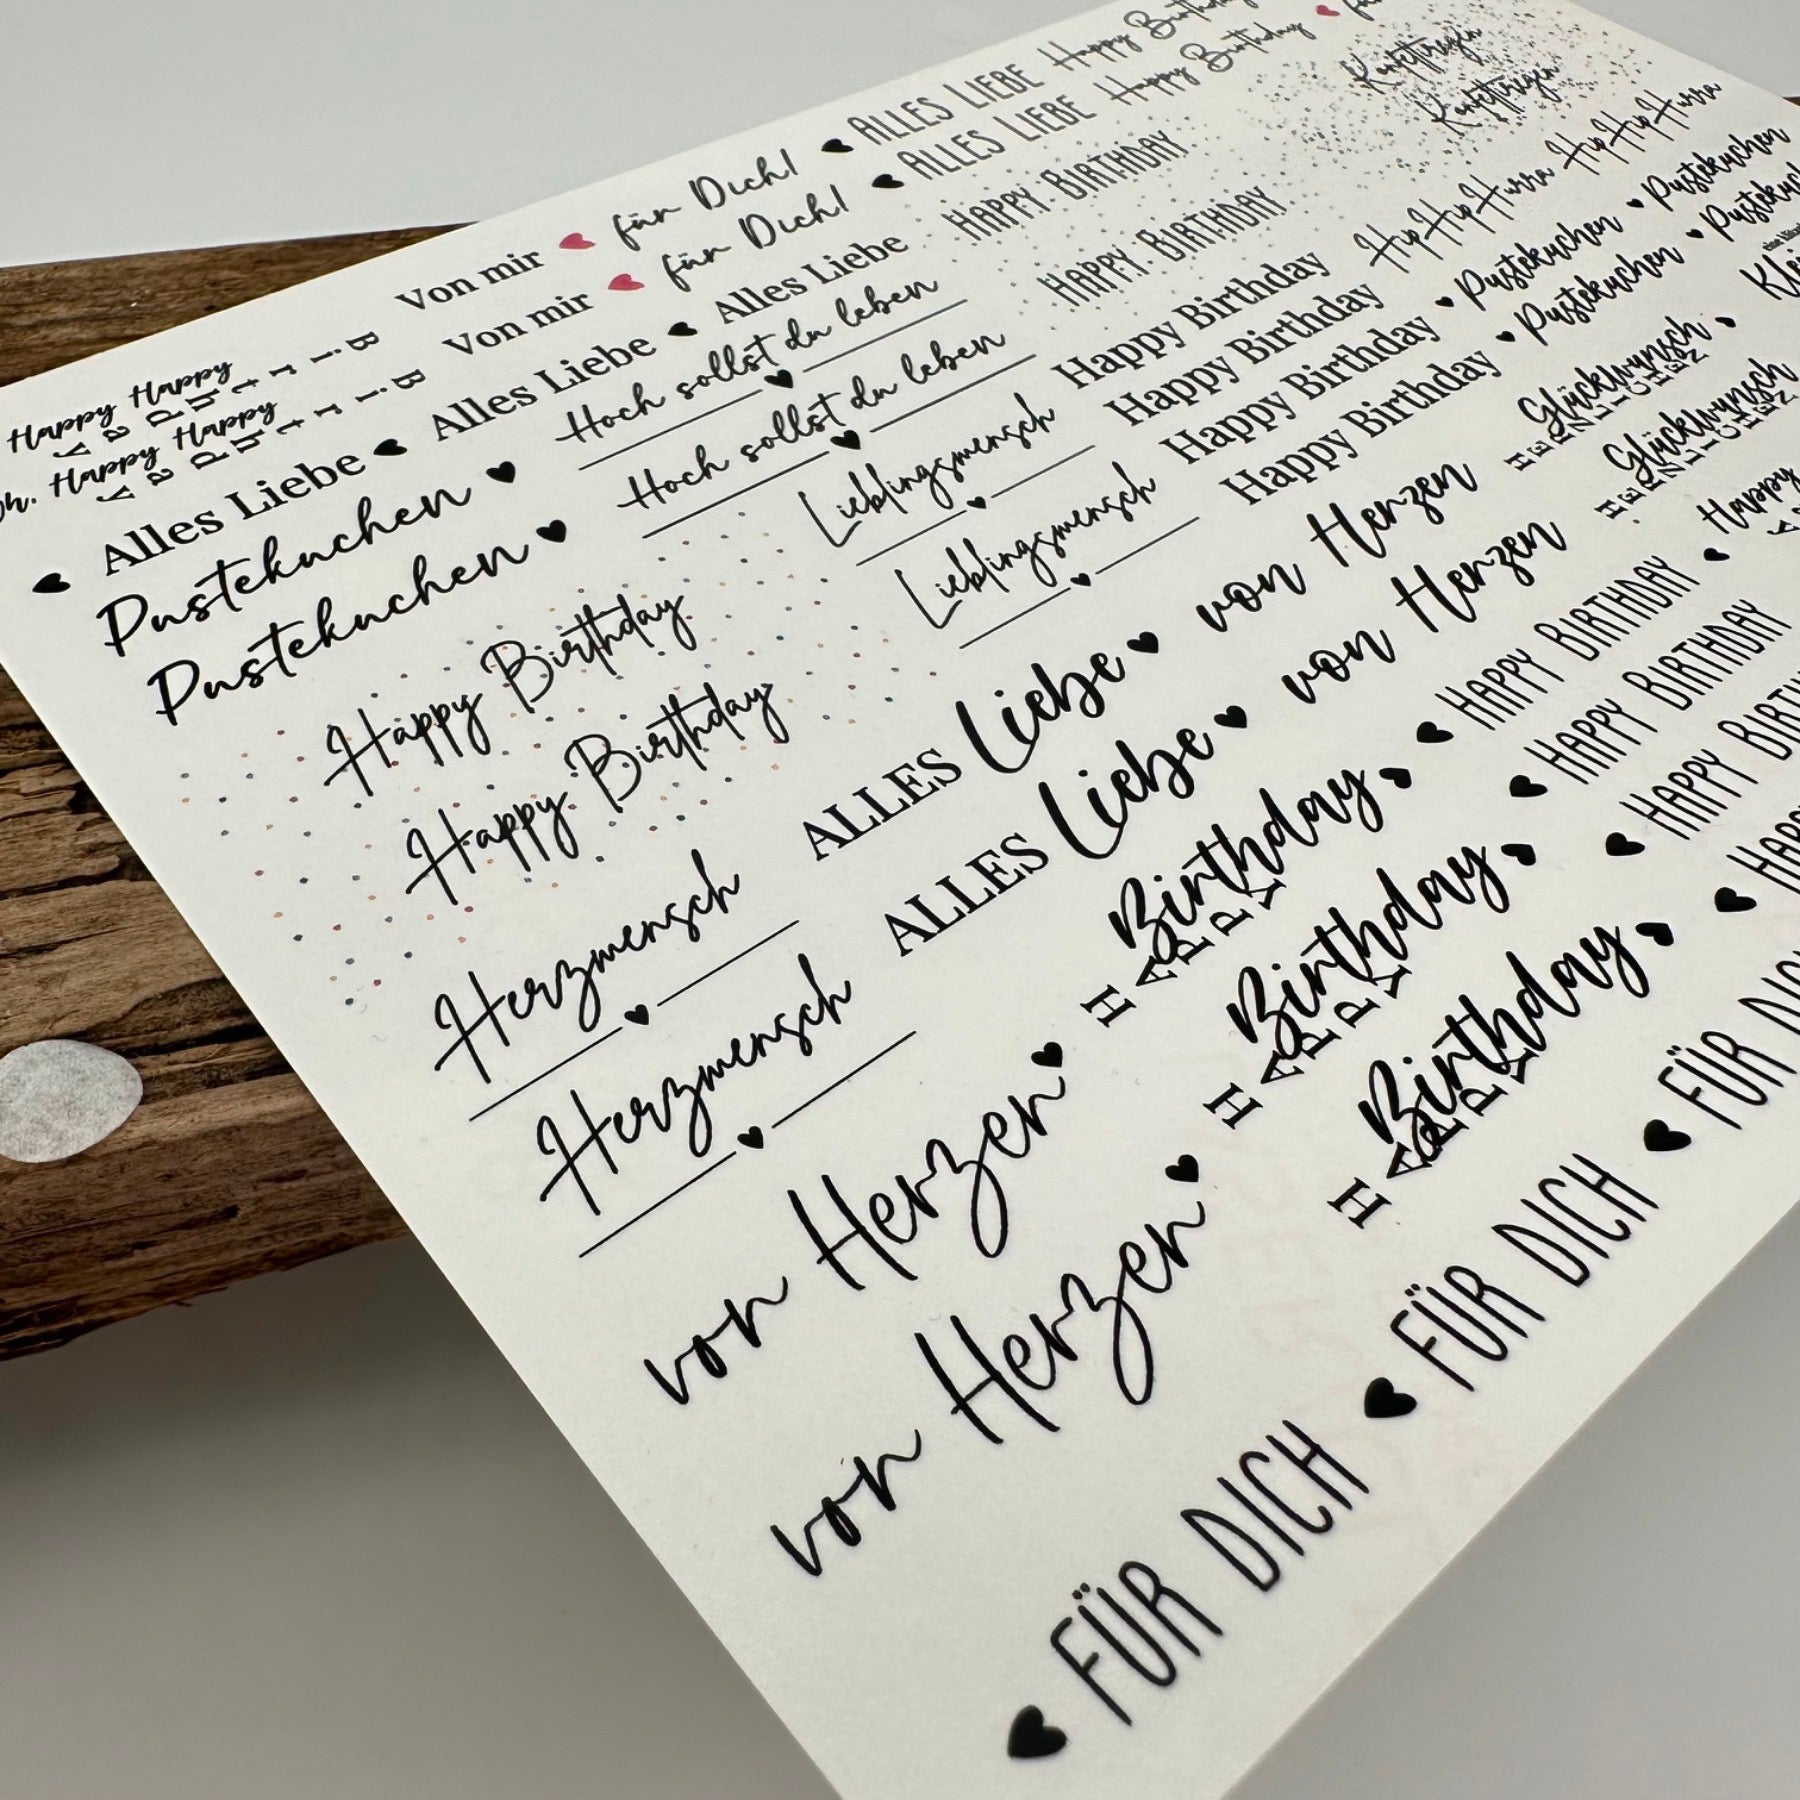 Happy Birthday
Happy Birthday
ALLES LIEBE
ALLES LIEBE
Konfettiregen
Konfettiregen
Von mir für Dich!
Von mir für Dich!
HipHipHurra HipHipHurra
HAPPY BIRTHDAY
HAPPY BIRTHDAY
Happy Happy
Birthday
Happy Happy
Birthday
Alles Liebe Alles Liebe Alles Liebe
Hoch sollst du leben
Hoch sollst du leben
Pustekuchen Pustekuchen
Pustekuchen
Happy Birthday
Happy Birthday
Happy Birthday
Happy Birthday
Pustekuchen
Pustekuchen
Lieblingsmensch
Lieblingsmensch
Glückwunsch
HERZLICHEN
Glückwunsch
HERZLICHEN
Happy
Happy Birthday
Happy Birthday
ALLES Liebe von Herzen
ALLES Liebe von Herzen
HAPPY BIRTHDAY
HAPPY BIRTHDAY
HAPPY
Herzmensch
Herzmensch
Birthday
HAPPY
Birthday
HAPPY
Birthday
HAPPY
von Herzen
von Herzen
FÜR DICH FÜR DICH FÜR